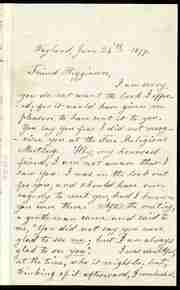 Wayland, June 26th 1877.
Friend Higginson,
I am sorry
you do not want the book I offer-
ed; for it would have given me
pleasure to have sent it to you.
You say you fear I did not recog-
nize you at the Free Religious
Meeting. Why, my honored
friend, I am not aware that I
saw you. I was on the look out
for you, and should have been
eagerly to meet you, had I known
you were there. After the meeting,
a gentleman came and said to
me, "You did not say you were
glad to see me; but I am always
glad to see you."
at the time, who it might be; but,
thinking of it afterward, I concluded,